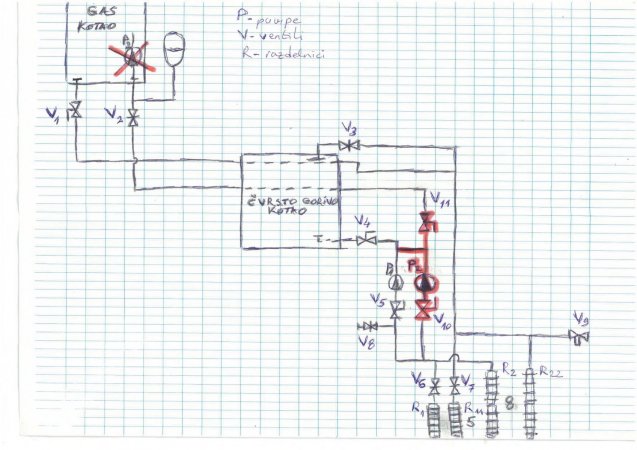 GAS
KOTAO
P - pumpe
V - ventili
R - razdelnici
P3
V1
V2
V3
ČVRSTO GORIVO
KOTAO
V11
V4
P2
V5
V10
V8
V9
V6
V7
R2
R22
R1
R11
5
8